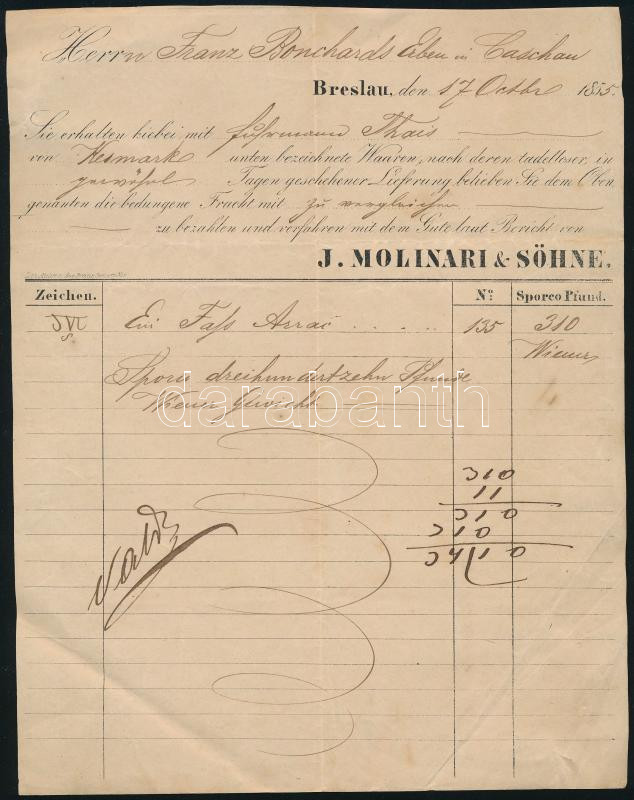 Herrn Franz Bonchards Erben in Caschau
Breslau, den 17 Octbr 1855.
Sie erhalten hiebei mit Fuhrmann Thais
von Kesmark unten bezeichnete Waaren, nach deren tadelloser, in
gewöhnl Tagen geschehener Lieferung belieben Sie dem Oben
genanten die bedungene Fracht mit zu vergleichen
zu bezahlen und verfahren mit dem Gute laut Bericht von
J. MOLINARI & SÖHNE.
Zeichen. No. Sporco Pfund.
Ein Faſs Arrac . . . . . 135 310
Wiener
Sporco dreihundertzehn Pfunde
Wiener Gewicht
darabanth
310
11
310
310
3410